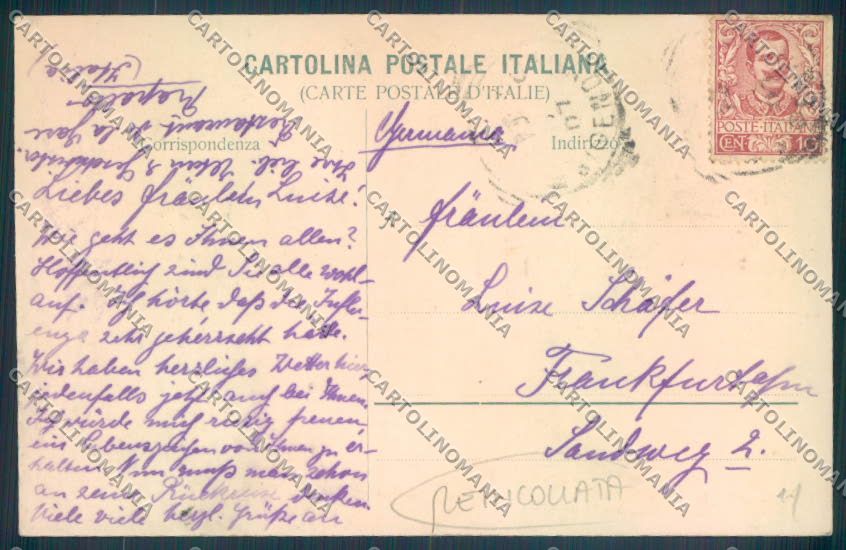 CARTOLINA POSTALE ITALIANA
(CARTE POSTALE D'ITALIE)
Corrispondenza
Indirizzo
POSTE·ITALIANE
CEN 10
Restaurant de la Gare
Rapallo
(Italie)
Liebes Fräulein Luise!
Wie geht es Ihnen allen?
Hoffentlich sind Sie alle wohl-
auf. Ich hörte daß die Influ-
enza sehr geherrscht hätte.
Wir haben herrliches Wetter hier
jedenfalls jetzt auch bei Ihnen.
Ich würde mich riesig freuen,
ein Lebenszeichen von Ihnen zu er-
halten. Nun muß man schon
an seine Rückreise denken.
Viele viele herzl. Grüße an
Germania
Fräulein
Luise Schäfer
Frankfurt a/m
Sandweg 2.
RETINCOLLATA
CARTOLINOMANIA